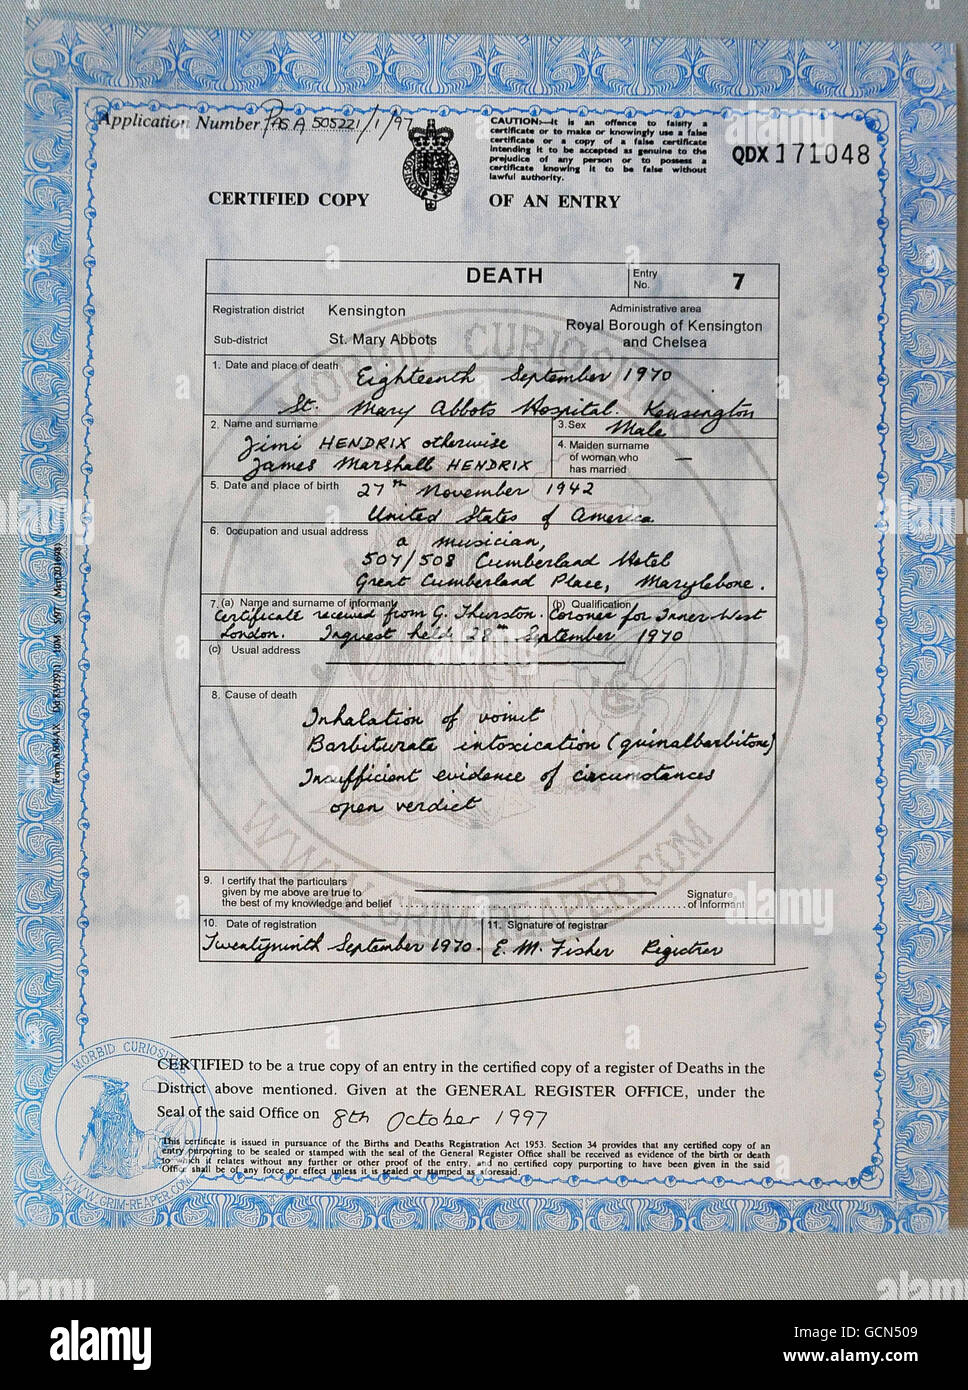 Application Number PAS A 505221/1/97
CAUTION:—It is an offence to falsify a
certificate or to make or knowingly use a false
certificate or a copy of a false certificate
intending it to be accepted as genuine to the
prejudice of any person or to possess a
certificate knowing it to be false without
lawful authority.
QDX 171048
CERTIFIED COPY OF AN ENTRY
DEATH
Entry No. 7
Registration district Kensington
Administrative area
Sub-district St. Mary Abbots
Royal Borough of Kensington
and Chelsea
1. Date and place of death Eighteenth September 1970
St. Mary Abbots Hospital. Kensington
2. Name and surname
Jimi HENDRIX otherwise
James Marshall HENDRIX
3. Sex Male
4. Maiden surname
of woman who
has married —
5. Date and place of birth 27th November 1942
United States of America
6. Occupation and usual address
a musician,
507/508 Cumberland Hotel
Great Cumberland Place, Marylebone.
7. (a) Name and surname of informant (b) Qualification
Certificate received from G. Thurston. Coroner for Inner West
London. Inquest held 28th September 1970
(c) Usual address
8. Cause of death
Inhalation of vomit
Barbiturate intoxication (quinalbarbitone)
Insufficient evidence of circumstances
open verdict
9. I certify that the particulars
given by me above are true to
the best of my knowledge and belief
Signature
of informant
10. Date of registration
Twentyninth September 1970.
11. Signature of registrar
E. M. Fisher Registrar
MORBID CURIOSITIES
WWW.GRIM-REAPER.COM
CERTIFIED to be a true copy of an entry in the certified copy of a register of Deaths in the
District above mentioned. Given at the GENERAL REGISTER OFFICE, under the
Seal of the said Office on 8th October 1997
This certificate is issued in pursuance of the Births and Deaths Registration Act 1953. Section 34 provides that any certified copy of an
entry purporting to be sealed or stamped with the seal of the General Register Office shall be received as evidence of the birth or death
to which it relates without any further or other proof of the entry, and no certified copy purporting to have been given in the said
Office shall be of any force or effect unless it is sealed or stamped as aforesaid.
MORBID CURIOSITIES
WWW.GRIM-REAPER.COM
alamy
alamy
alamy
alamy
alamy
alamy
alamy
alamy
Image ID: GCN509
www.alamy.com